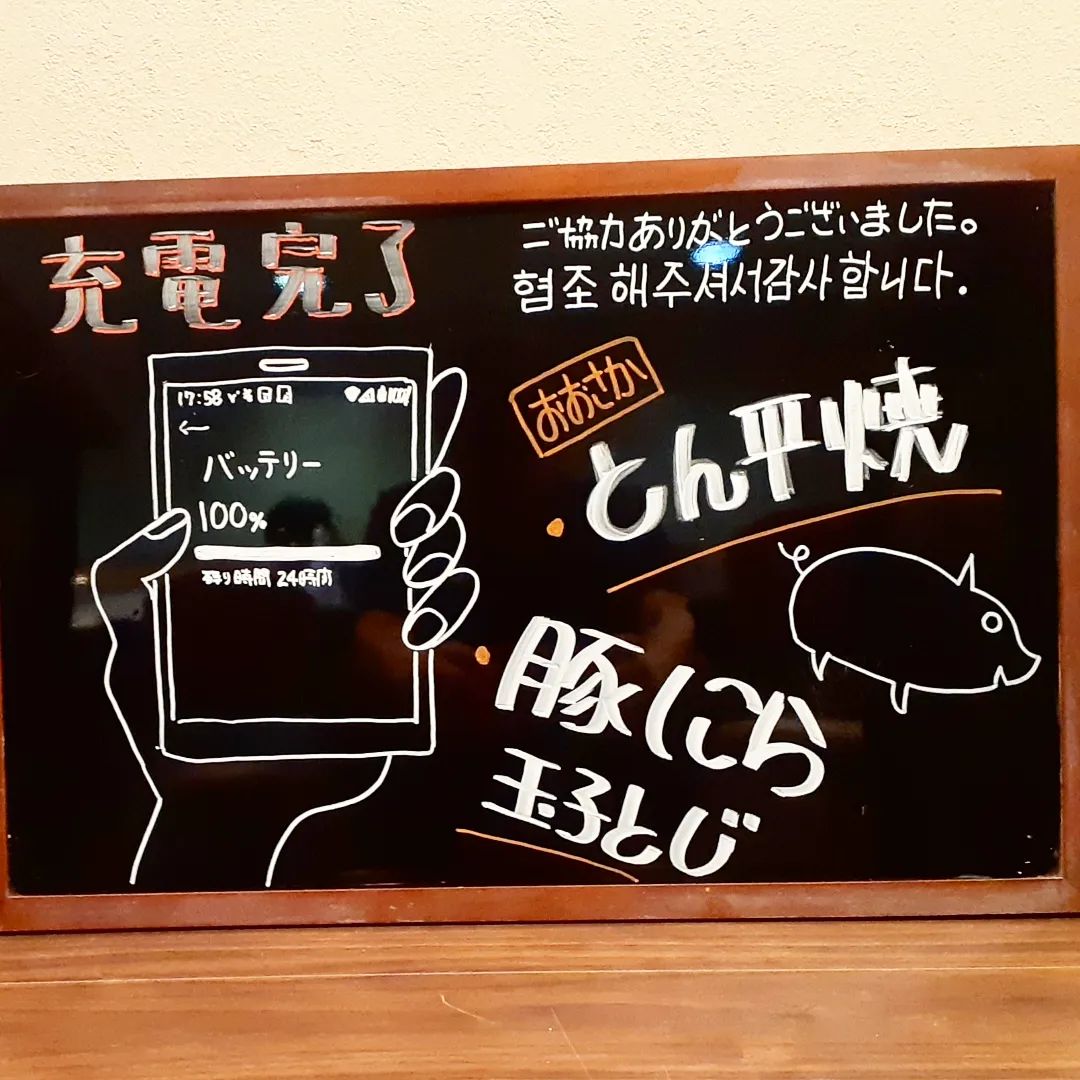 充電完了
ご協力ありがとうございました。
협조 해주셔서감사합니다.
17:58
←
バッテリー
100%
残り時間 24時間
おおさか
・とん平焼
・豚にら
玉子とじ